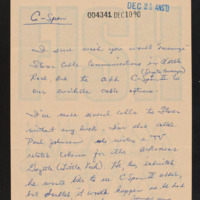 C-Span
004341 DEC 10 90
DEC 21 AN'D
I sure wish you would "encourage"
Storer Cable Communications in Little
Rock Ark to add C-Span II to
our available cable options.
I've made several calls to Storer
without any luck. I've also called
Paul Johnson who writes a
related column for the Arkansas
Gazette (Little Rock). He, too, indicated
he would like to see C-Span II added,
but doubted it would happen